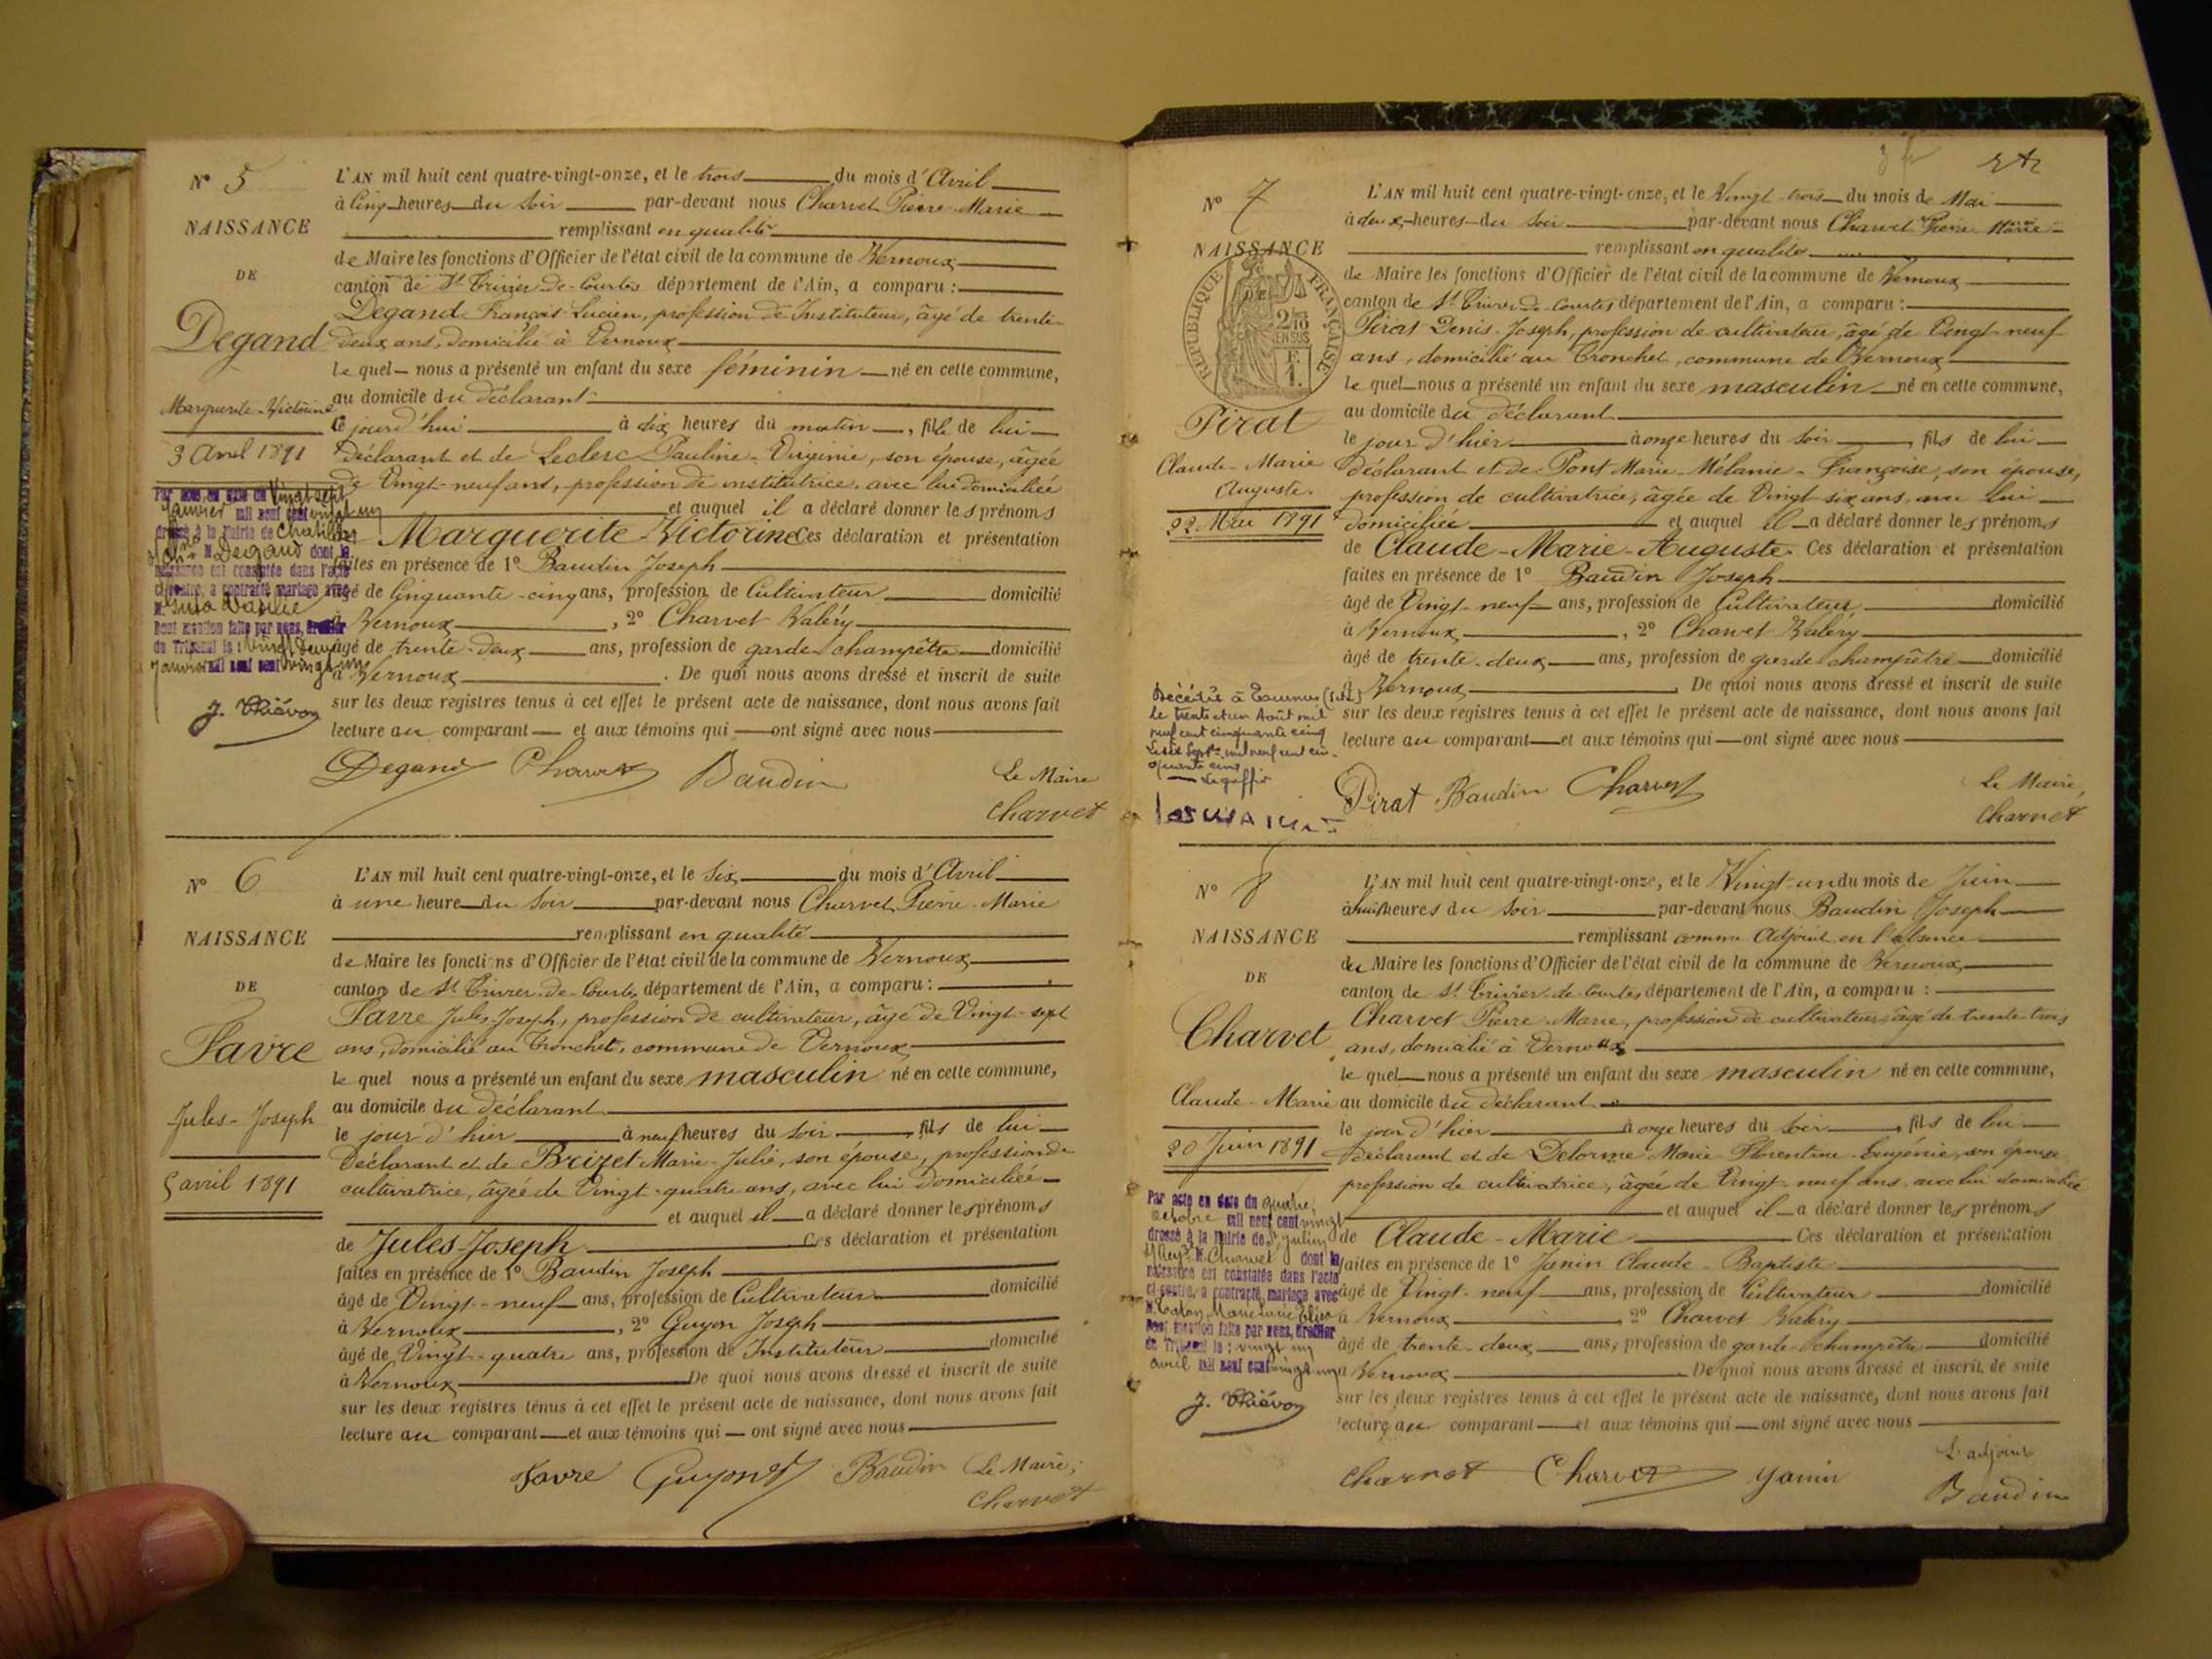 N° 5
NAISSANCE
DE
Degand
Marguerite-Victorine
3 Avril 1891
L'AN mil huit cent quatre-vingt-onze, et le trois du mois d'Avril
à cinq heures du soir par-devant nous Charvet Pierre-Marie
remplissant en qualité
de Maire les fonctions d'Officier de l'état civil de la commune de Vernoux
canton de St Trivier-de-Courtes département de l'Ain, a comparu :
Degand François Lucien, profession de Instituteur, âgé de trente-
deux ans, domicilié à Vernoux
le quel nous a présenté un enfant du sexe féminin né en cette commune,
au domicile du déclarant
ce jourd'hui à dix heures du matin, fille de lui
déclarant et de Leclerc Pauline-Virginie, son épouse, âgée
de Vingt-neuf ans, profession de institutrice, avec lui domiciliée
et auquel il a déclaré donner les prénoms
de Marguerite Victorine Ces déclaration et présentation
faites en présence de 1° Baudin Joseph
âgé de Cinquante-cinq ans, profession de Cultivateur domicilié
à Vernoux, 2° Charvet Valéry
âgé de trente-deux ans, profession de garde-champêtre domicilié
à Vernoux. De quoi nous avons dressé et inscrit de suite
sur les deux registres tenus à cet effet le présent acte de naissance, dont nous avons fait
lecture au comparant et aux témoins qui ont signé avec nous
Par acte en date du Vingt sept
Janvier mil neuf cent vingt un
dressé à la Mairie de Chatillon
M. Degand dont la
naissance est constatée dans l'acte
ci-contre, a contracté mariage avec
M.
Dont mention faite par nous, Greffier
du Tribunal le : Vingt deux
Janvier mil neuf cent vingt un
J. Thiévon
Degand Charvet Baudin
Le Maire
Charvet
N° 6
NAISSANCE
DE
Favre
Jules-Joseph
5 avril 1891
L'AN mil huit cent quatre-vingt-onze, et le Six du mois d'Avril
à une heure du Soir par-devant nous Charvet Pierre-Marie
remplissant en qualité
de Maire les fonctions d'Officier de l'état civil de la commune de Vernoux
canton de St Trivier-de-Courtes département de l'Ain, a comparu :
Favre Jules-Joseph, profession de cultivateur, âgé de Vingt-sept
ans, domicilié au Tronchet, commune de Vernoux
le quel nous a présenté un enfant du sexe masculin né en cette commune,
au domicile du déclarant
le jour d'hier à neuf heures du soir, fils de lui
déclarant et de Brizet Marie-Julie, son épouse, profession de
cultivatrice, âgée de Vingt-quatre ans, avec lui domiciliée
et auquel il a déclaré donner les prénoms
de Jules-Joseph Ces déclaration et présentation
faites en présence de 1° Baudin Joseph
âgé de Vingt-neuf ans, profession de Cultivateur domicilié
à Vernoux, 2° Guyon Joseph
âgé de Vingt-quatre ans, profession de Instituteur domicilié
à Vernoux De quoi nous avons dressé et inscrit de suite
sur les deux registres tenus à cet effet le présent acte de naissance, dont nous avons fait
lecture au comparant et aux témoins qui ont signé avec nous
Favre Guyon Baudin Le Maire,
Charvet
N° 7
NAISSANCE
DE
RÉPUBLIQUE FRANÇAISE
2/10
EN SUS
F.
1.
Pirat
Claude-Marie
Auguste.
22 Mai 1891
L'AN mil huit cent quatre-vingt-onze, et le Vingt-trois du mois de Mai
à deux heures du soir par-devant nous Charvet Pierre Marie
remplissant en qualité
de Maire les fonctions d'Officier de l'état civil de la commune de Vernoux
canton de St Trivier-de-Courtes département de l'Ain, a comparu :
Pirat Denis-Joseph, profession de cultivateur, âgé de Vingt-neuf
ans, domicilié au Tronchet, commune de Vernoux
le quel nous a présenté un enfant du sexe masculin né en cette commune,
au domicile du déclarant
le jour d'hier à onze heures du soir, fils de lui
déclarant et de Pont Marie-Mélanie-Françoise, son épouse,
profession de cultivatrice, âgée de Vingt-six ans, avec lui
domiciliée et auquel il a déclaré donner les prénoms
de Claude-Marie-Auguste. Ces déclaration et présentation
faites en présence de 1° Baudin Joseph
âgé de Vingt-neuf ans, profession de Cultivateur domicilié
à Vernoux, 2° Charvet Valéry
âgé de trente-deux ans, profession de garde-champêtre domicilié
à Vernoux. De quoi nous avons dressé et inscrit de suite
sur les deux registres tenus à cet effet le présent acte de naissance, dont nous avons fait
lecture au comparant et aux témoins qui ont signé avec nous
Décédé à
le trente et un Août mil
neuf cent cinquante cinq
Le Sept. mil neuf cent cin-
quante cinq
Le greffier
Pirat Baudin Charvet
Le Maire,
Charvet
N° 8
NAISSANCE
DE
Charvet
Claude-Marie
20 Juin 1891
L'AN mil huit cent quatre-vingt-onze, et le Vingt-un du mois de Juin
à huit heures du Soir par-devant nous Baudin Joseph
remplissant comme Adjoint en l'absence
du Maire les fonctions d'Officier de l'état civil de la commune de Vernoux
canton de St Trivier-de-Courtes département de l'Ain, a comparu :
Charvet Pierre-Marie, profession de cultivateur, âgé de trente-trois
ans, domicilié à Vernoux
le quel nous a présenté un enfant du sexe masculin né en cette commune,
au domicile du déclarant
le jour d'hier à onze heures du soir, fils de lui
déclarant et de Delorme Marie-Florentine-Eugénie, son épouse
profession de cultivatrice, âgée de Vingt-neuf ans avec lui domiciliée
et auquel il a déclaré donner les prénoms
de Claude-Marie Ces déclaration et présentation
faites en présence de 1° Janin Claude-Baptiste
âgé de Vingt-neuf ans, profession de Cultivateur domicilié
à Vernoux 2° Charvet Valéry
âgé de trente-deux ans, profession de garde-champêtre domicilié
à Vernoux De quoi nous avons dressé et inscrit de suite
sur les deux registres tenus à cet effet le présent acte de naissance, dont nous avons fait
lecture au comparant et aux témoins qui ont signé avec nous
Par acte en date du quatre
Octobre mil neuf cent vingt
dressé à la Mairie de St Julien
s/ Reyss. M. Charvet dont la
naissance est constatée dans l'acte
ci-contre, a contracté mariage avec
M. Marie Louise
Dont mention faite par nous, Greffier
du Tribunal le : vingt un
avril mil neuf cent vingt un
J. Thiévon
Charvet Charvet Janin
L'adjoint
Baudin